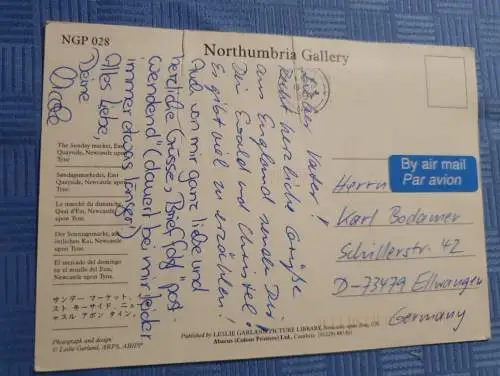 NGP 028
Northumbria Gallery
Lieber Vater!
Recht herzliche Grüße
aus England senden Dir
Dir Ewald und Christel!
Es gibt viel zu erzählen!
Auch von mir ganz liebe und
herzliche Grüsse, Brief folgt "post-
wendend" (dauert bei mir leider
immer etwas länger!)
Alles Liebe,
Deine
The Sunday market, East
Quayside, Newcastle upon
Tyne.
Søndagsmarkedet, East
Quayside, Newcastle upon
Tyne.
Le marché du dimanche
Quai d'Est, Newcastle upon
Tyne.
Der Sonntagsmarkt, am
östlichen Kai, Newcastle upon
Tyne.
El mercado del domingo
en el muelle del Este,
Newcastle upon Tyne.
サンデー マーケット、イー
スト キーサイド、ニュー
キャスル アポン タイン。
Photograph and design
© Leslie Garland, ARPS, ABIPP
Published by LESLIE GARLAND PICTURE LIBRARY, Newcastle upon Tyne, UK
Abacus (Colour Printers) Ltd., Cumbria
By air mail
Par avion
Herrn
Karl Bodamer
Schillerstr. 42
D-73479 Ellwangen
Germany